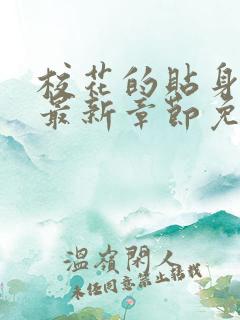 校花的贴身
最新章節免
溫嶺閑人
未经同意禁止转载